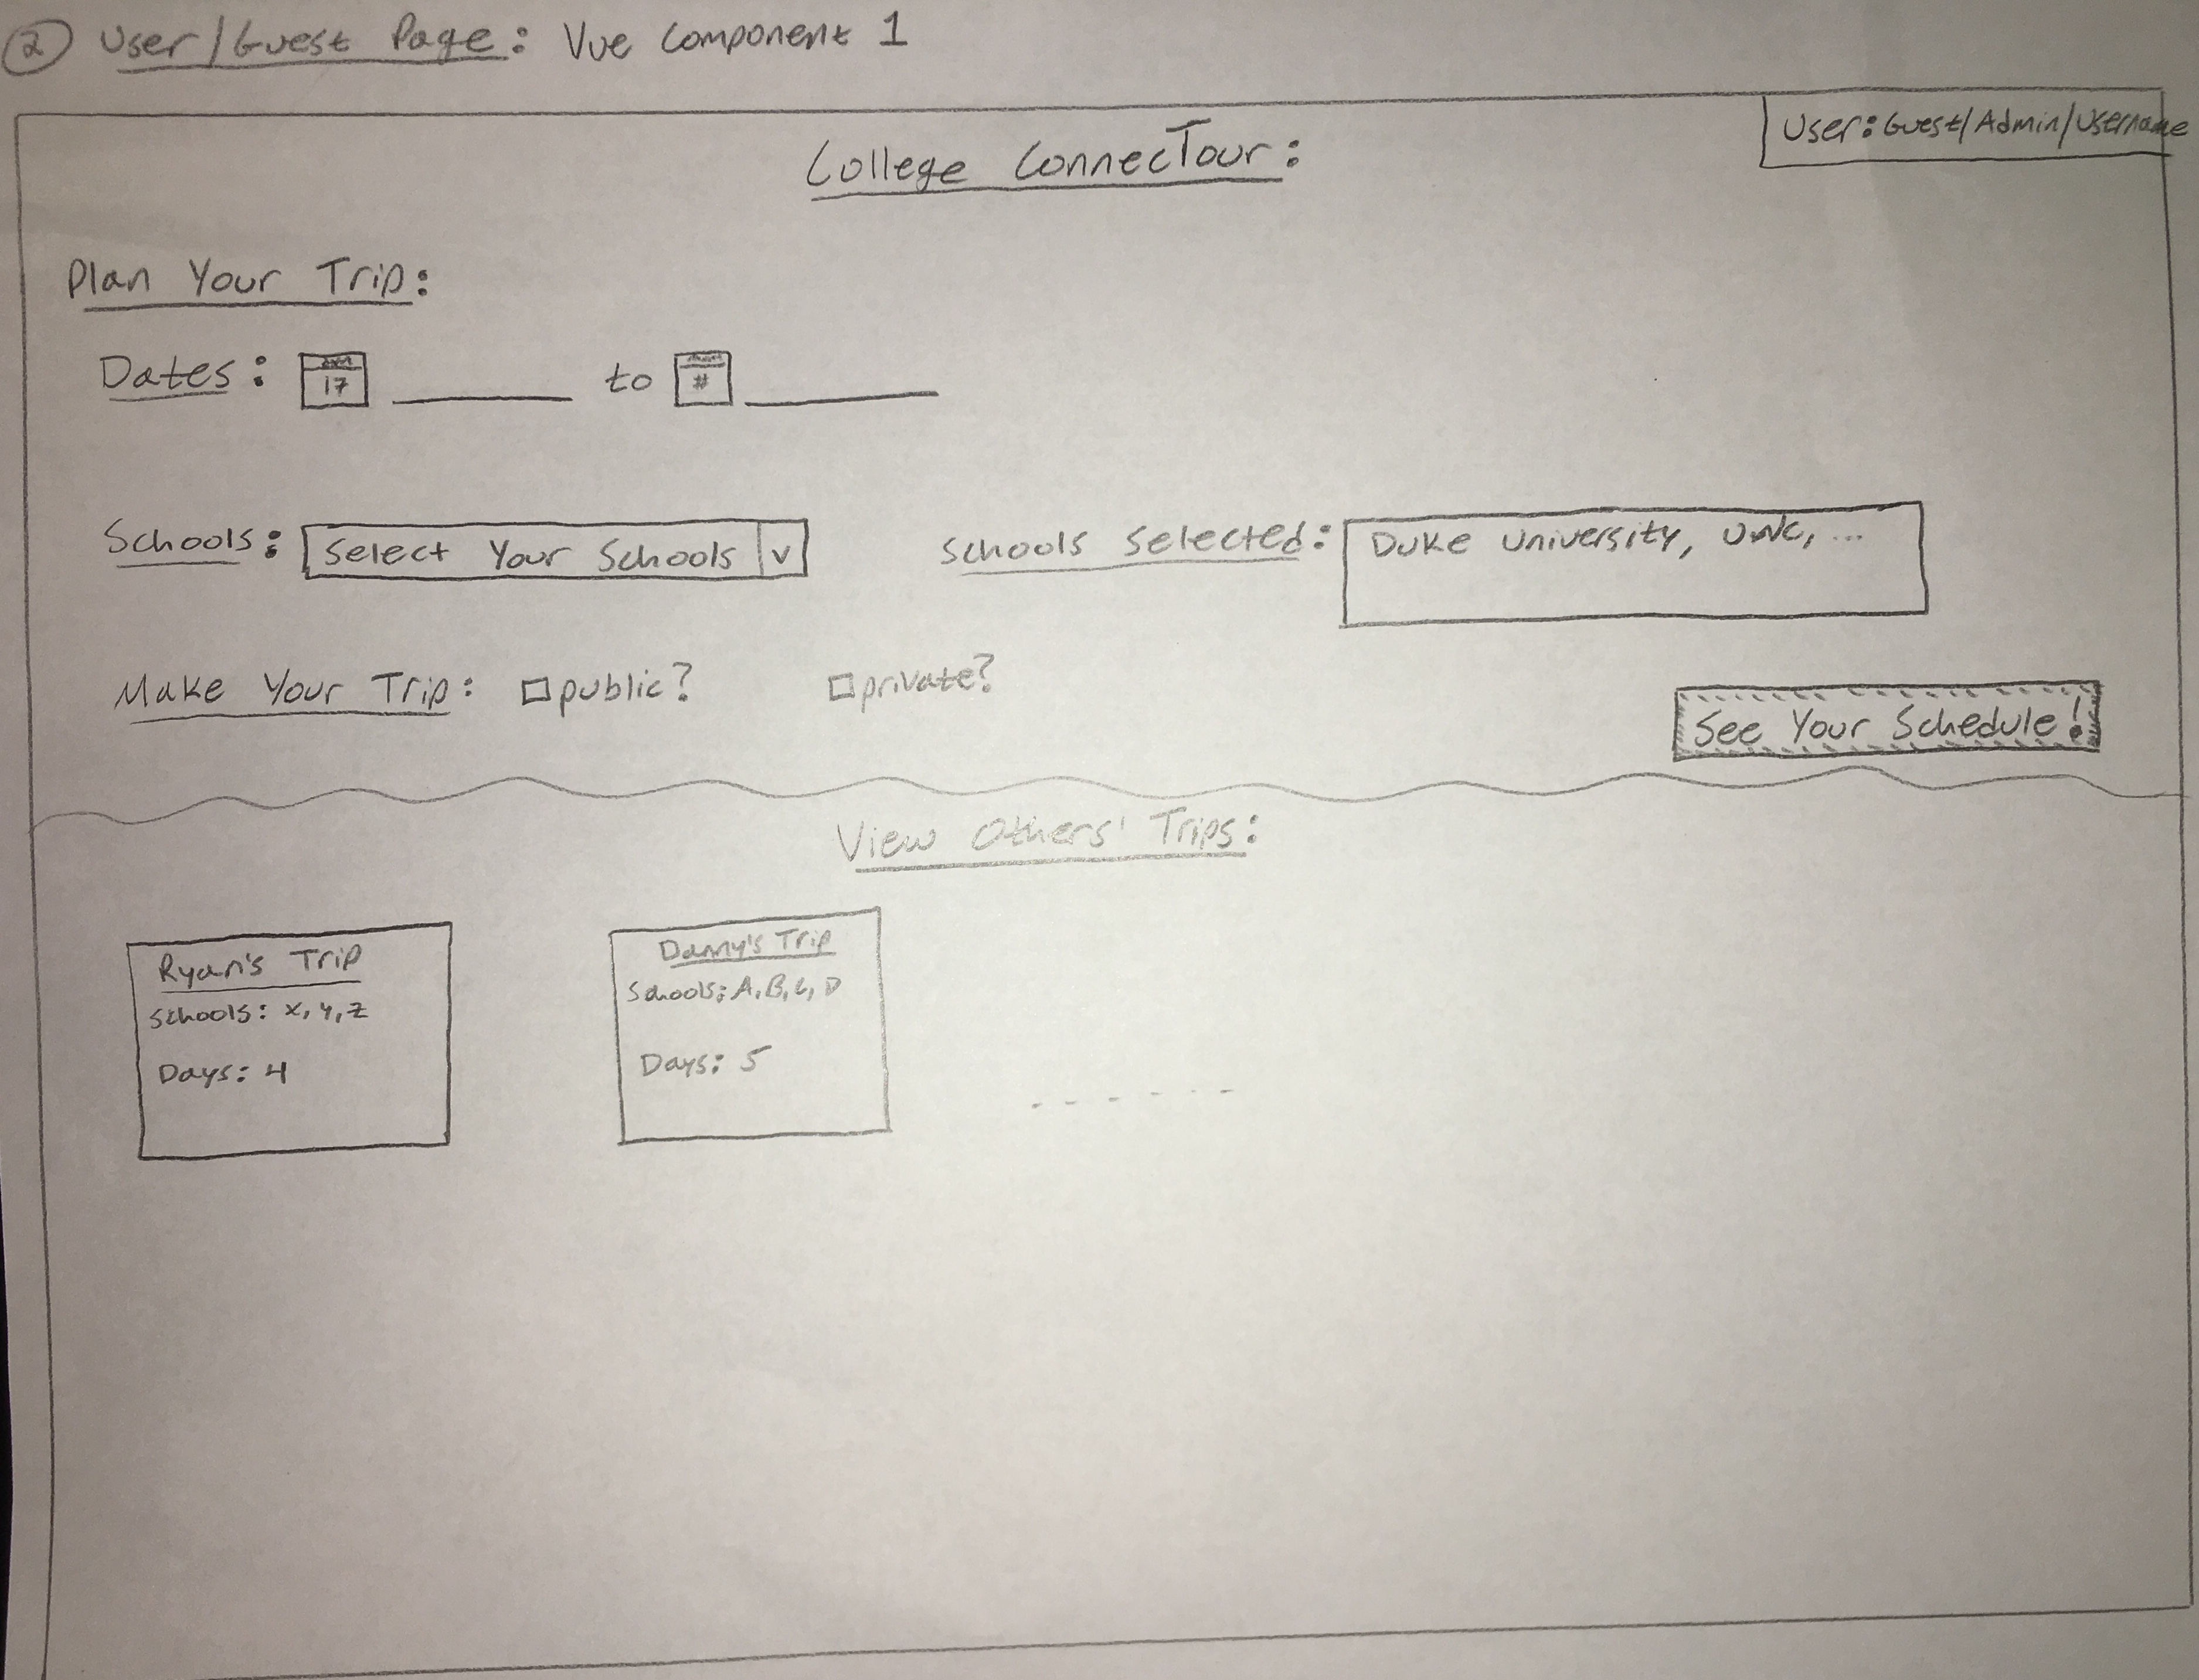 2 User/Guest Page: Vue Component 1
User: Guest/Admin/Username
College ConnecTour:
Plan Your Trip:
Dates: 17 to #
Schools: Select Your Schools v Schools Selected: Duke University, UNC, ...
Make Your Trip: public? private?
See Your Schedule!
View Others' Trips:
Ryan's Trip
Schools: X, Y, Z
Days: 4
Danny's Trip
Schools: A, B, C, D
Days: 5